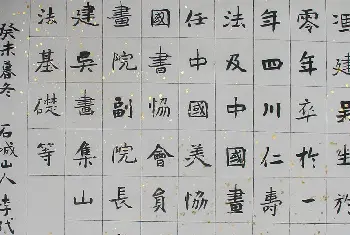 馮建吳生於
零年卒於一
年四川仁壽
法及中國畫
任中國美協
國書協會員
畫院副院長
建吳畫集山
法基礎等
癸未暮冬 石城山人 李代